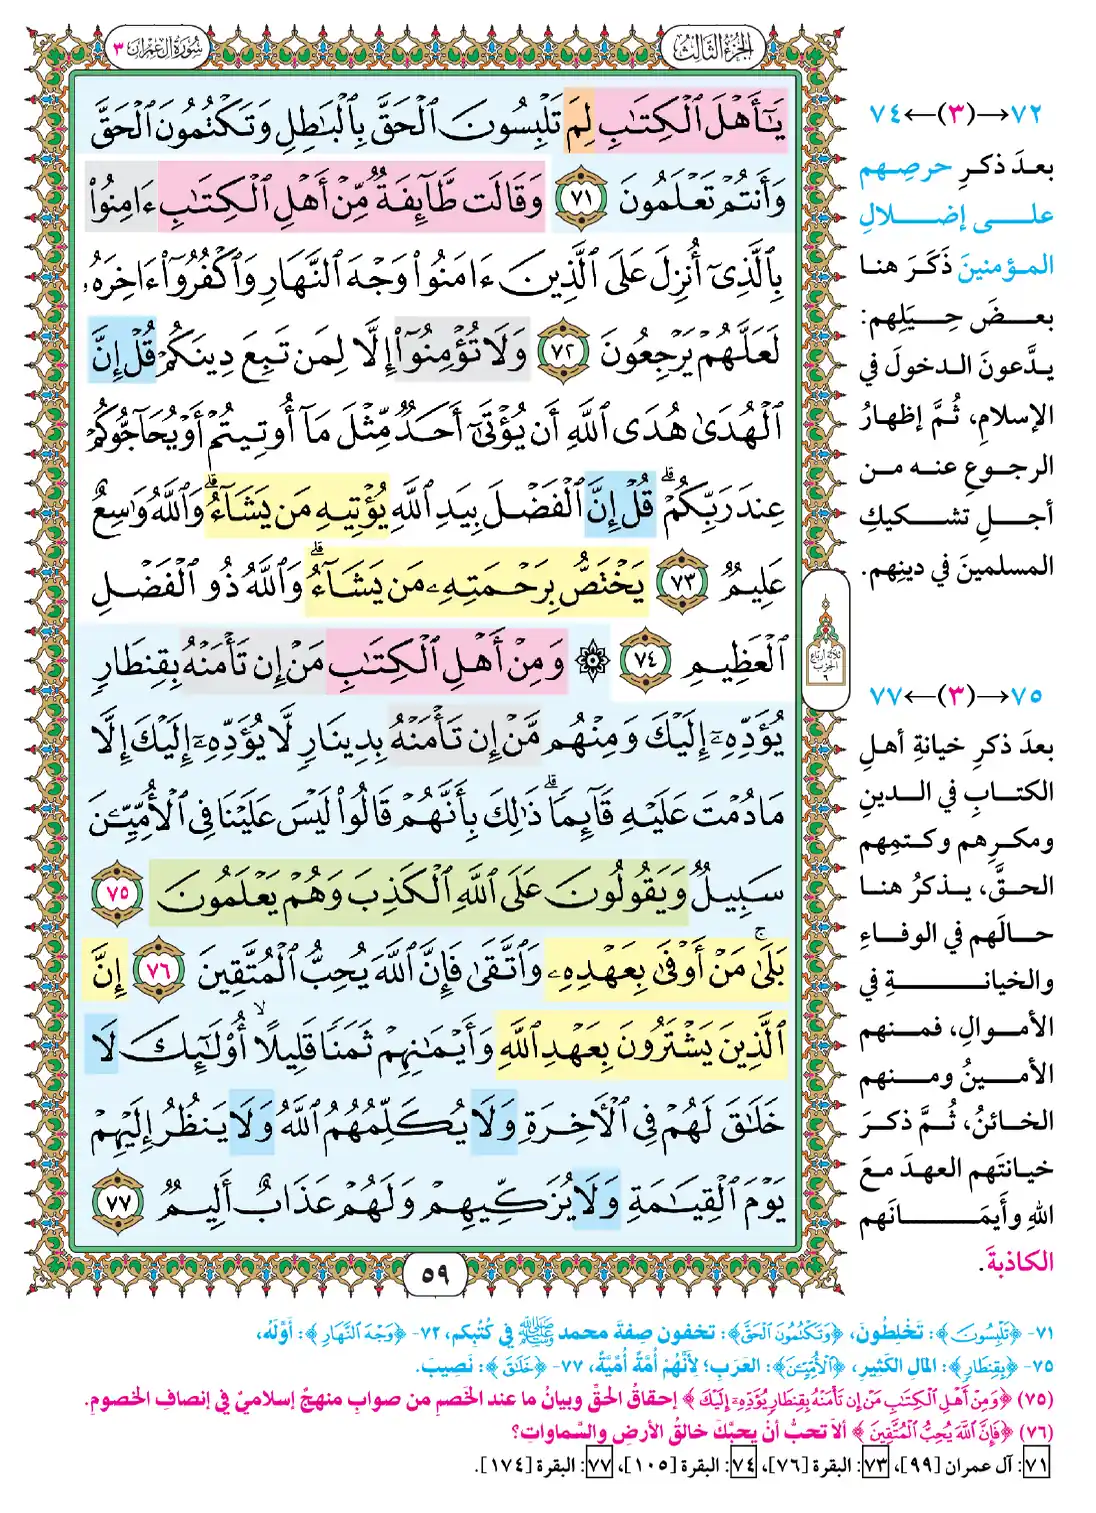 الجزء الثالث
سورة آل عمران ٣
يَٰٓأَهۡلَ ٱلۡكِتَٰبِ لِمَ تَلۡبِسُونَ ٱلۡحَقَّ بِٱلۡبَٰطِلِ وَتَكۡتُمُونَ ٱلۡحَقَّ
وَأَنتُمۡ تَعۡلَمُونَ ٧١ وَقَالَت طَّآئِفَةٞ مِّنۡ أَهۡلِ ٱلۡكِتَٰبِ ءَامِنُواْ
بِٱلَّذِيٓ أُنزِلَ عَلَى ٱلَّذِينَ ءَامَنُواْ وَجۡهَ ٱلنَّهَارِ وَٱكۡفُرُوٓاْ ءَاخِرَهُۥ
لَعَلَّهُمۡ يَرۡجِعُونَ ٧٢ وَلَا تُؤۡمِنُوٓاْ إِلَّا لِمَن تَبِعَ دِينَكُمۡ قُلۡ إِنَّ
ٱلۡهُدَىٰ هُدَى ٱللَّهِ أَن يُؤۡتَىٰٓ أَحَدٞ مِّثۡلَ مَآ أُوتِيتُمۡ أَوۡ يُحَآجُّوكُمۡ
عِندَ رَبِّكُمۡۗ قُلۡ إِنَّ ٱلۡفَضۡلَ بِيَدِ ٱللَّهِ يُؤۡتِيهِ مَن يَشَآءُۗ وَٱللَّهُ وَٰسِعٌ
عَلِيمٞ ٧٣ يَخۡتَصُّ بِرَحۡمَتِهِۦ مَن يَشَآءُۗ وَٱللَّهُ ذُو ٱلۡفَضۡلِ
ٱلۡعَظِيمِ ٧٤ ۞ وَمِنۡ أَهۡلِ ٱلۡكِتَٰبِ مَنۡ إِن تَأۡمَنۡهُ بِقِنطَارٖ
يُؤَدِّهِۦٓ إِلَيۡكَ وَمِنۡهُم مَّنۡ إِن تَأۡمَنۡهُ بِدِينَارٖ لَّا يُؤَدِّهِۦٓ إِلَيۡكَ إِلَّا
مَا دُمۡتَ عَلَيۡهِ قَآئِمٗاۗ ذَٰلِكَ بِأَنَّهُمۡ قَالُواْ لَيۡسَ عَلَيۡنَا فِي ٱلۡأُمِّيِّـۧنَ
سَبِيلٞ وَيَقُولُونَ عَلَى ٱللَّهِ ٱلۡكَذِبَ وَهُمۡ يَعۡلَمُونَ ٧٥
بَلَىٰۚ مَنۡ أَوۡفَىٰ بِعَهۡدِهِۦ وَٱتَّقَىٰ فَإِنَّ ٱللَّهَ يُحِبُّ ٱلۡمُتَّقِينَ ٧٦ إِنَّ
ٱلَّذِينَ يَشۡتَرُونَ بِعَهۡدِ ٱللَّهِ وَأَيۡمَٰنِهِمۡ ثَمَنٗا قَلِيلًاۙ أُوْلَٰٓئِكَ لَا
خَلَٰقَ لَهُمۡ فِي ٱلۡأٓخِرَةِ وَلَا يُكَلِّمُهُمُ ٱللَّهُ وَلَا يَنظُرُ إِلَيۡهِمۡ
يَوۡمَ ٱلۡقِيَٰمَةِ وَلَا يُزَكِّيهِمۡ وَلَهُمۡ عَذَابٌ أَلِيمٞ ٧٧
٥٩
ثلاثة أرباع
الحزب
٦
٧٢→(٣)←٧٤
بعدَ ذكرِ حرصِهم
على إضلالِ
المؤمنينَ ذَكَرَ هنا
بعضَ حِيَلِهم:
يدَّعونَ الدخولَ في
الإسلامِ، ثُمَّ إظهارُ
الرجوعِ عنه من
أجلِ تشكيكِ
المسلمينَ في دينِهم.
٧٥→(٣)←٧٧
بعدَ ذكرِ خيانةِ أهلِ
الكتابِ في الدينِ
ومكرِهم وكتمِهم
الحقَّ، يذكرُ هنا
حالَهم في الوفاءِ
والخيانةِ في
الأموالِ، فمنهم
الأمينُ ومنهم
الخائنُ، ثُمَّ ذكرَ
خيانتَهم العهدَ معَ
اللهِ وأيمَانَهم
الكاذبةَ.
٧١- ﴿تَلْبِسُونَ﴾: تَخْلِطُونَ، ﴿وَتَكْتُمُونَ الْحَقَّ﴾: تخفون صِفةَ محمد ﷺ في كُتُبِكم، ٧٢- ﴿وَجْهَ النَّهَارِ﴾: أَوَّلَهُ،
٧٥- ﴿بِقِنطَارٍ﴾: المالِ الكَثِيرِ، ﴿الْأُمِّيِّـۧنَ﴾: العَرَبِ؛ لِأَنَّهُمْ أُمَّةٌ أُمِّيَّةٌ، ٧٧- ﴿خَلَاقَ﴾: نَصِيبَ.
(٧٥) ﴿وَمِنْ أَهْلِ الْكِتَابِ مَنْ إِن تَأْمَنْهُ بِقِنطَارٍ يُؤَدِّهِ إِلَيْكَ﴾ إحقاقُ الحقِّ وبيانُ ما عند الخَصمِ من صوابٍ منهجٌ إسلاميٌ في إنصافِ الخصومِ.
(٧٦) ﴿فَإِنَّ اللَّهَ يُحِبُّ الْمُتَّقِينَ﴾ ألا تحبُّ أنْ يحبَّكَ خالقُ الأرضِ والسَّماواتِ؟
٧١: آل عمران [٩٩]، ٧٣: البقرة [٧٦]، ٧٤: البقرة [١٠٥]، ٧٧: البقرة [١٧٤].